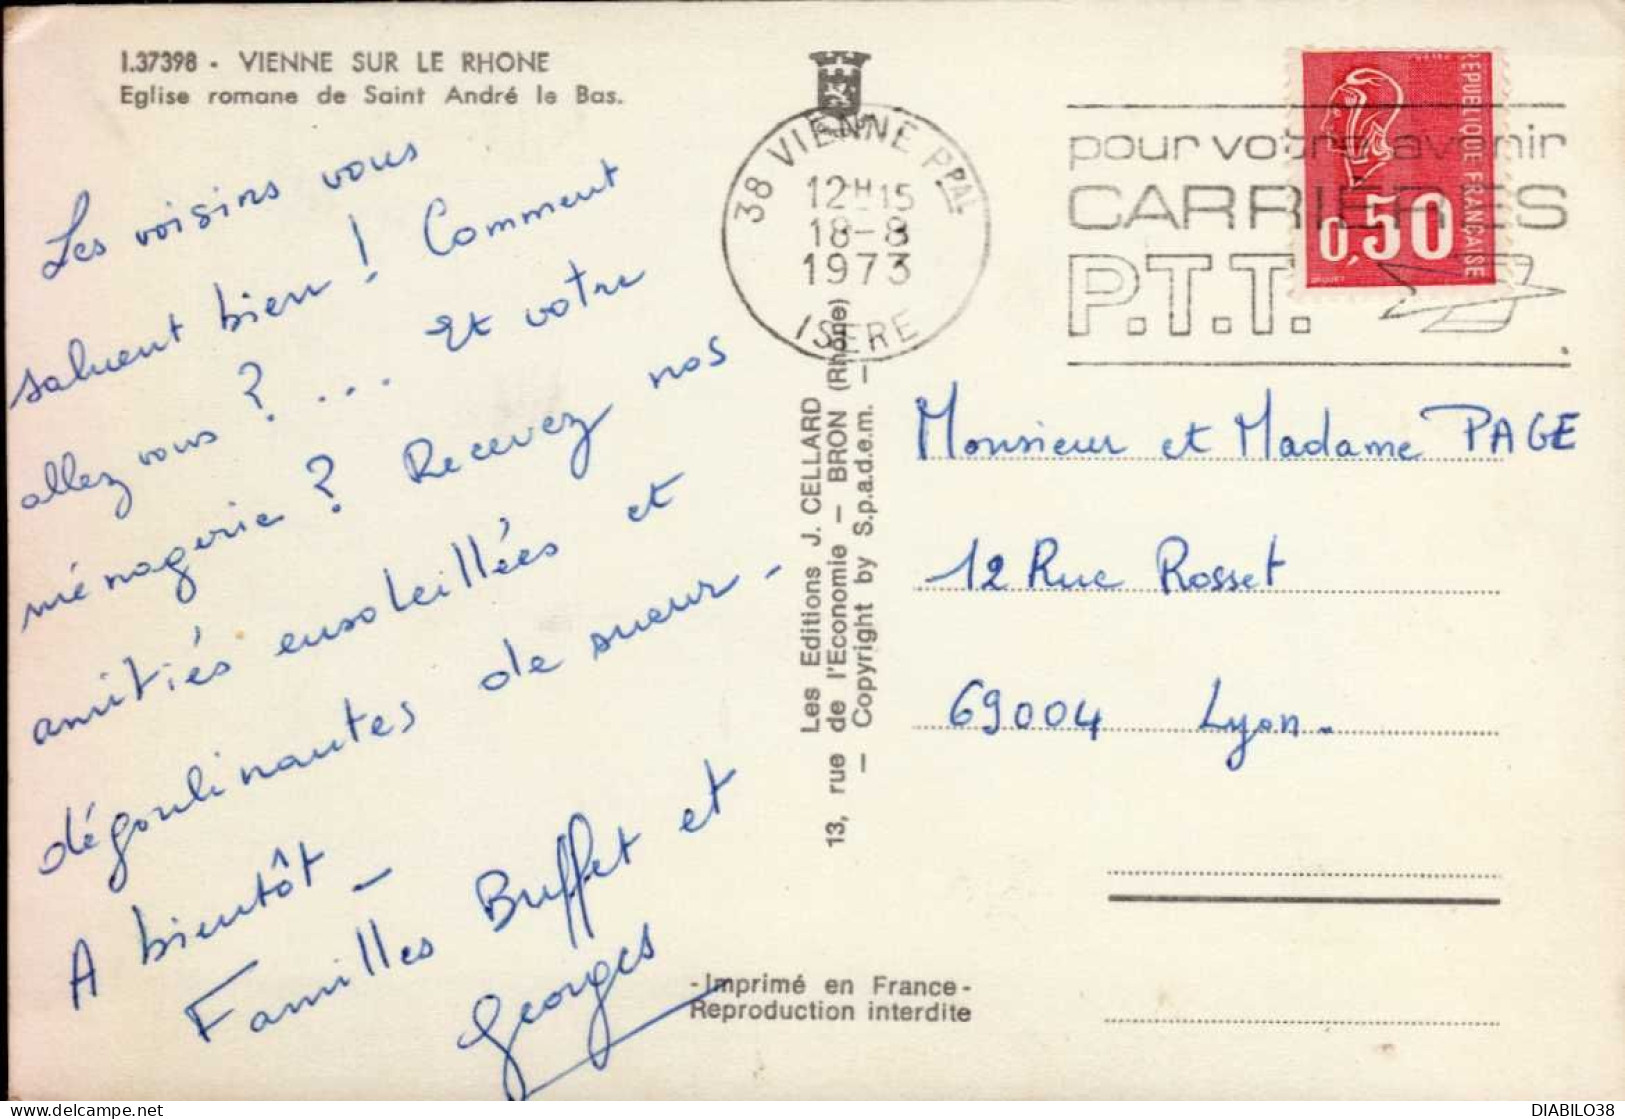 I.37398 - VIENNE SUR LE RHONE
Eglise romane de Saint André le Bas.
Les voisins vous
saluent bien ! Comment
allez vous ? ... Et votre
ménagerie ? Recevez nos
amitiés ensoleillées et
dégoulinantes de sueur -
A bientôt -
Familles Buffet et
Georges
38 VIENNE PPAL
12H15
18-8
1973
ISERE
pour votre avenir
CARRIÈRES
P.T.T.
REPUBLIQUE FRANÇAISE
0,50
Les Editions J. CELLARD
13, rue de l'Economie - BRON (Rhône)
- Copyright by S.p.a.d.e.m. -
Monsieur et Madame PAGE
12 Rue Rosset
69004 Lyon.
-Imprimé en France-
Reproduction interdite
DIABILO38